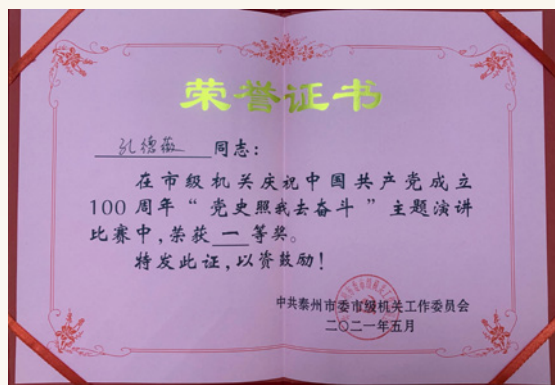 荣誉证书
孔德薇同志：
在市级机关庆祝中国共产党成立
100周年“党史照我去奋斗”主题演讲
比赛中，荣获一等奖。
特发此证，以资鼓励！
中共泰州市委市级机关工作委员会
二〇二一年五月